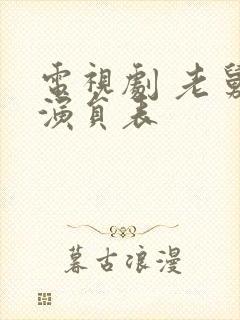 電視劇 老舅
演員表
暮古浪漫